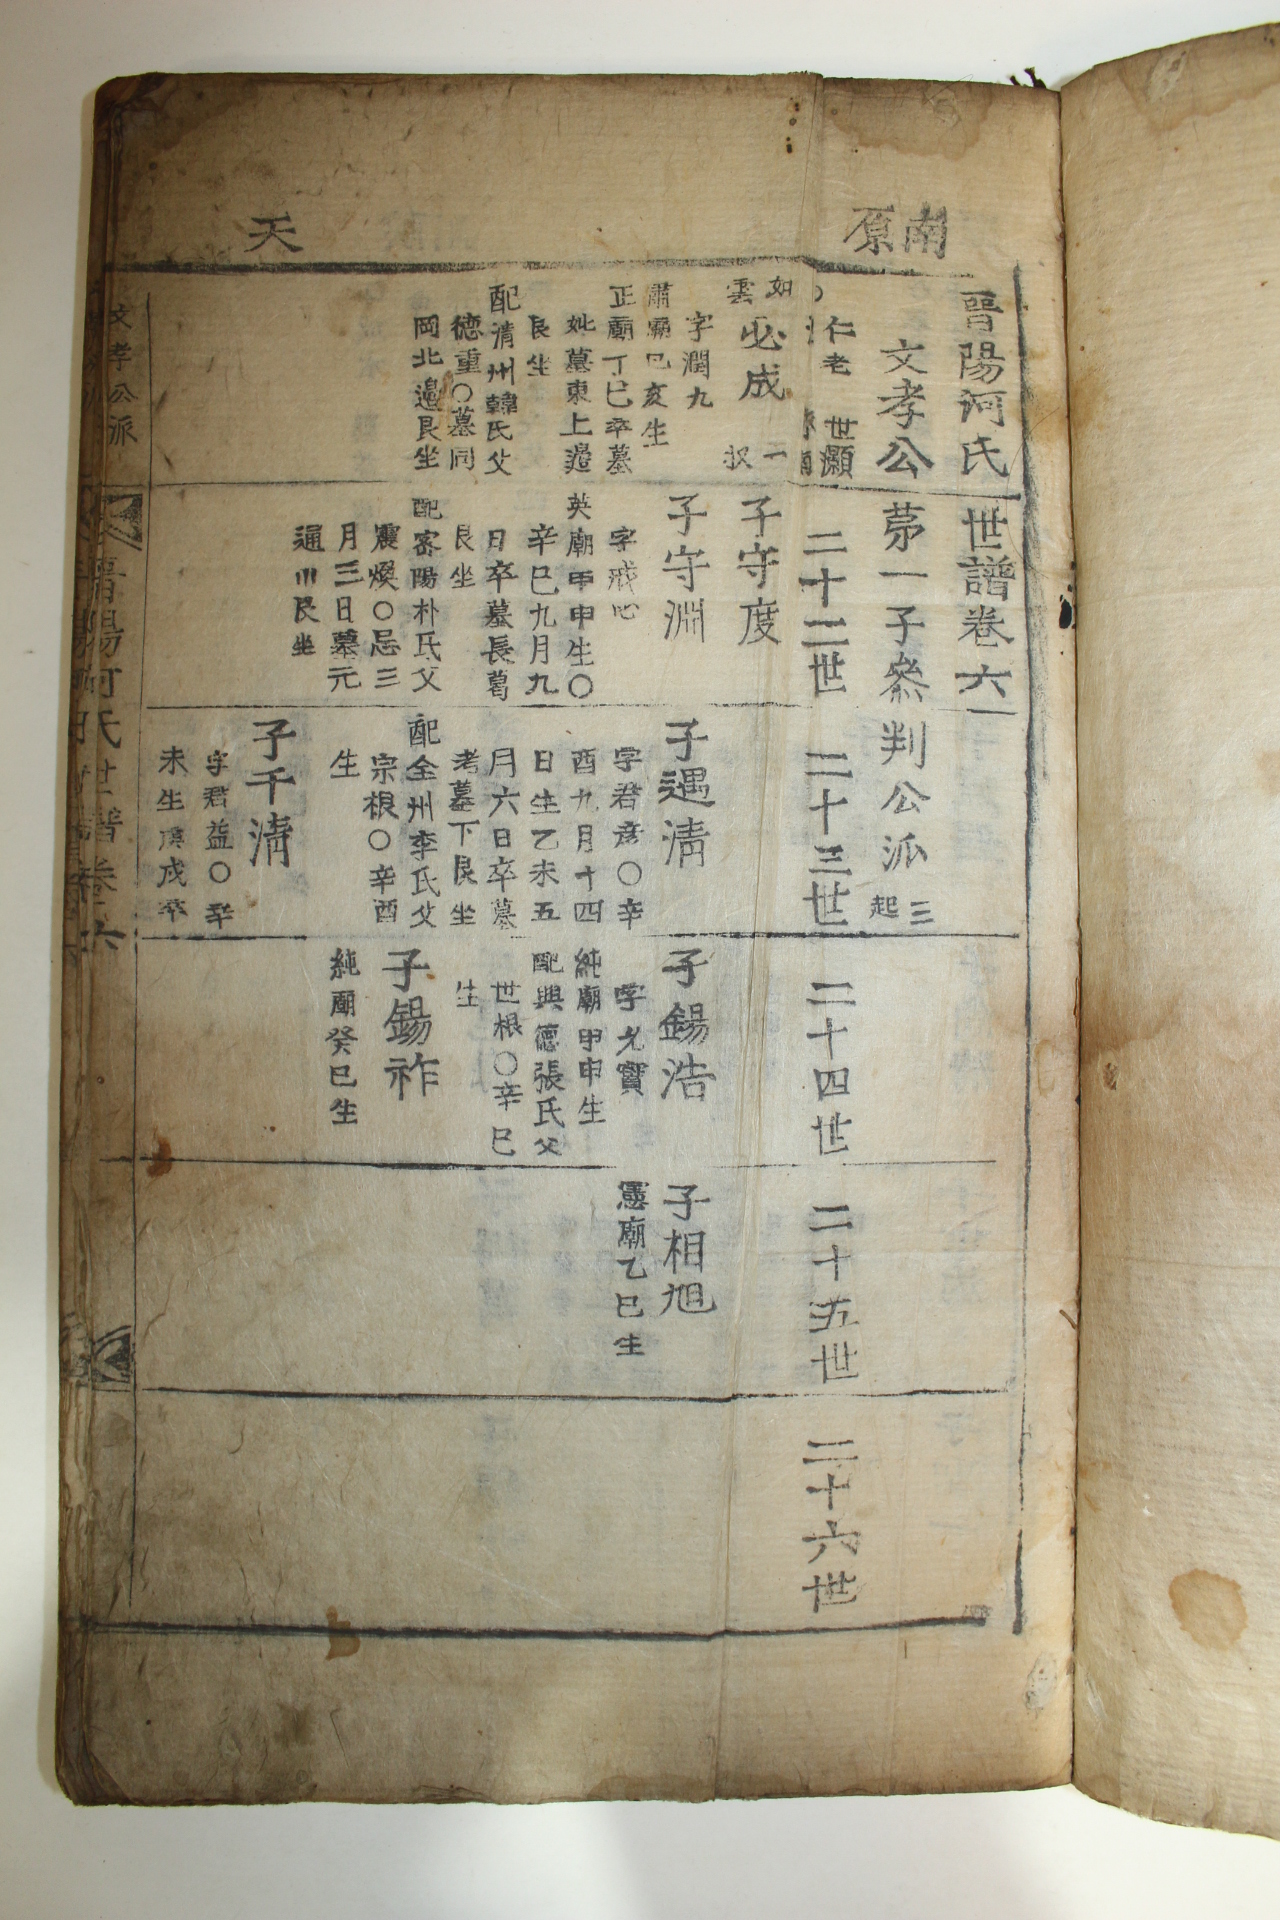 南原
天
晋陽河氏世譜卷六
文孝公第一子叅判公派 三起
仁老 世灝
二十二世
二十三世
二十四世
二十五世
二十六世
如雲
必成
字潤九
肅廟己亥生
正廟丁巳卒墓
妣墓東上邉
艮坐
配清州韓氏父
德重〇墓同
岡北邉艮坐
子守度
子守淵
字戒心
英廟甲申生〇
辛巳九月九
日卒墓長葛
艮坐
配密陽朴氏父
震煥〇忌三
月三日墓元
通川艮坐
子遇淸
字君彦〇辛
酉九月十四
日生乙未五
月六日卒墓
考墓下艮坐
配全州李氏父
宗根〇辛酉
生
子千淸
字君益〇辛
未生庚戌卒
子錫浩
字允寶
純廟甲申生
配興德張氏父
世根〇辛巳
生
子錫祚
純廟癸巳生
子相旭
憲廟乙巳生
文孝公派
晋陽河氏世譜卷六